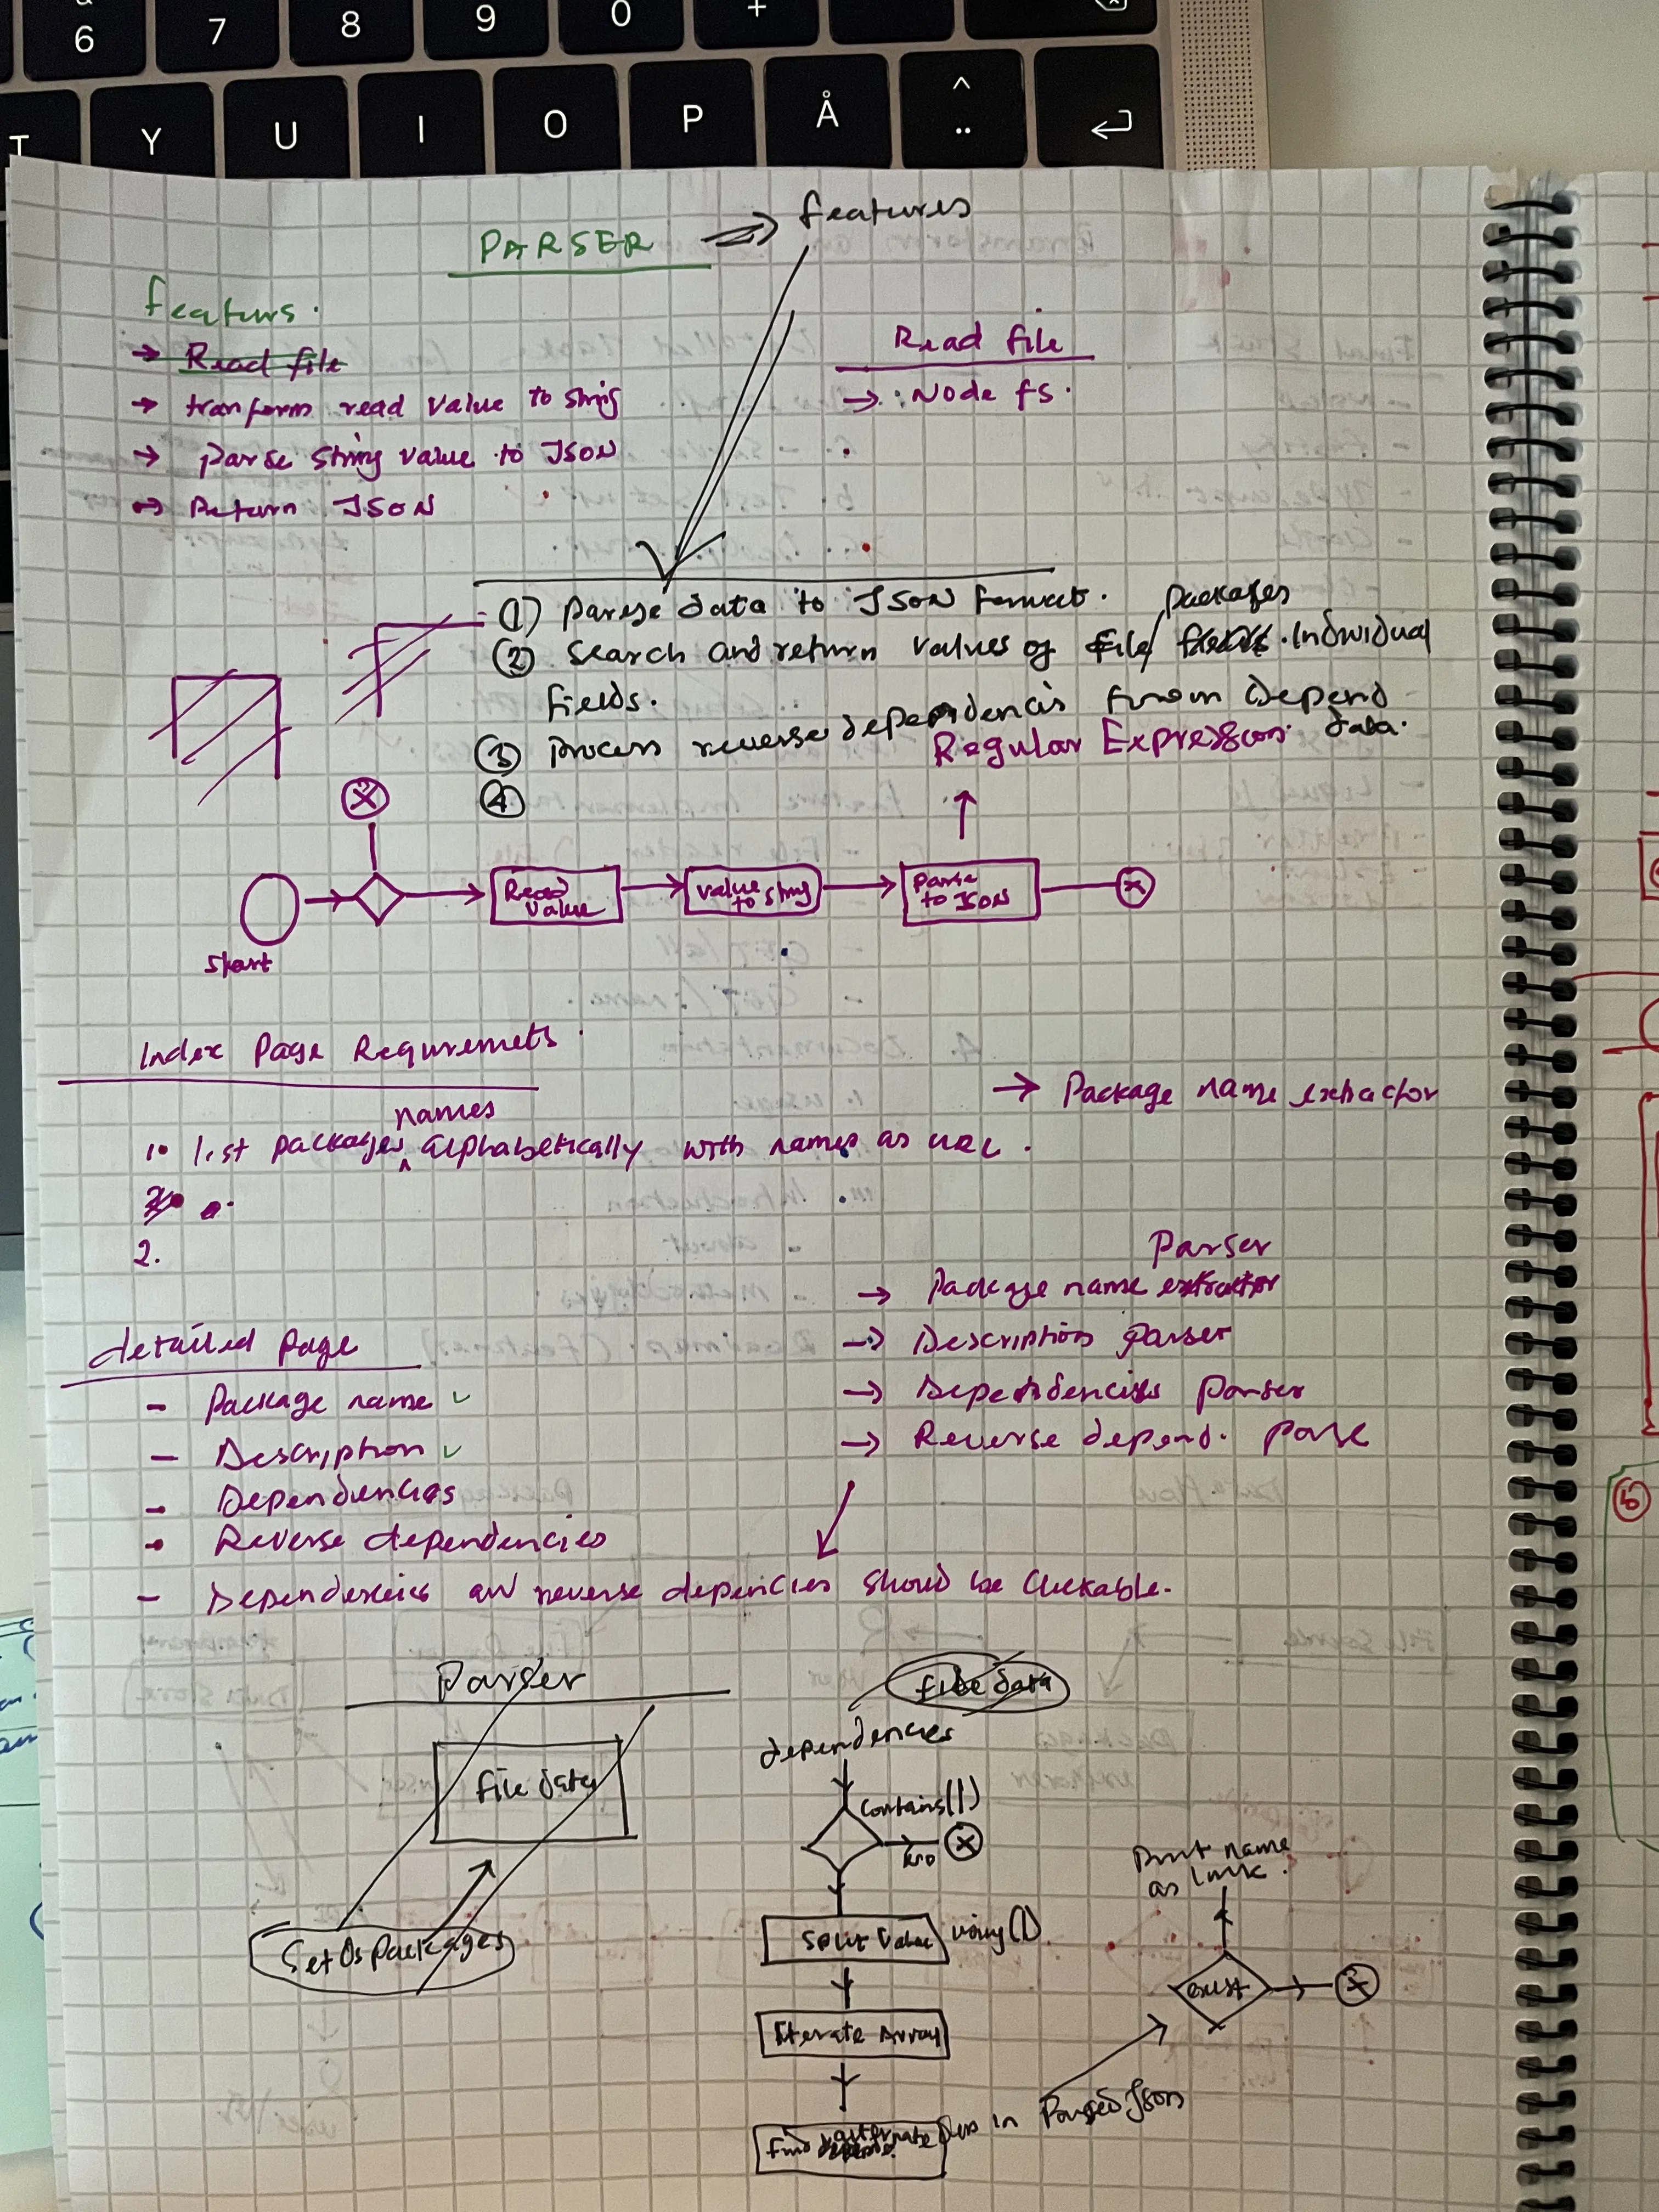 6 7 8 9 0 +
T Y U I O P Å ^ ¨
PARSER → features
featurs.
→ Read file
→ tranform read value to string
→ parse string value to JSON
→ Return JSON
Read file
→ : Node fs.
(1) parse data to JSON format.
packages
(2) Search and return values of file / Individual
fields.
(3) process reverse dependencis from Depend
data.
Regular Expression.
(4)
Read
Value
value
to string
parse
to JSON
start
Index Page Requremets
→ Package name extractor
names
1. list packages alphabetically with names as URL.
2.
Parser
→ Package name extractor
→ Description parser
→ Dependencies parser
→ Reverse depend. parse
detailed page
- Package name ✓
- Description ✓
- Dependencies
- Reverse dependencies
- Dependencies and reverse depencies should be clickable.
Parser
file data
file data
dependencies
contains(|)
no
Split Value using (|)
Iterate Array
find alternate
in Parsed Json
SetOsPackages
Print name
as link.
exist
5